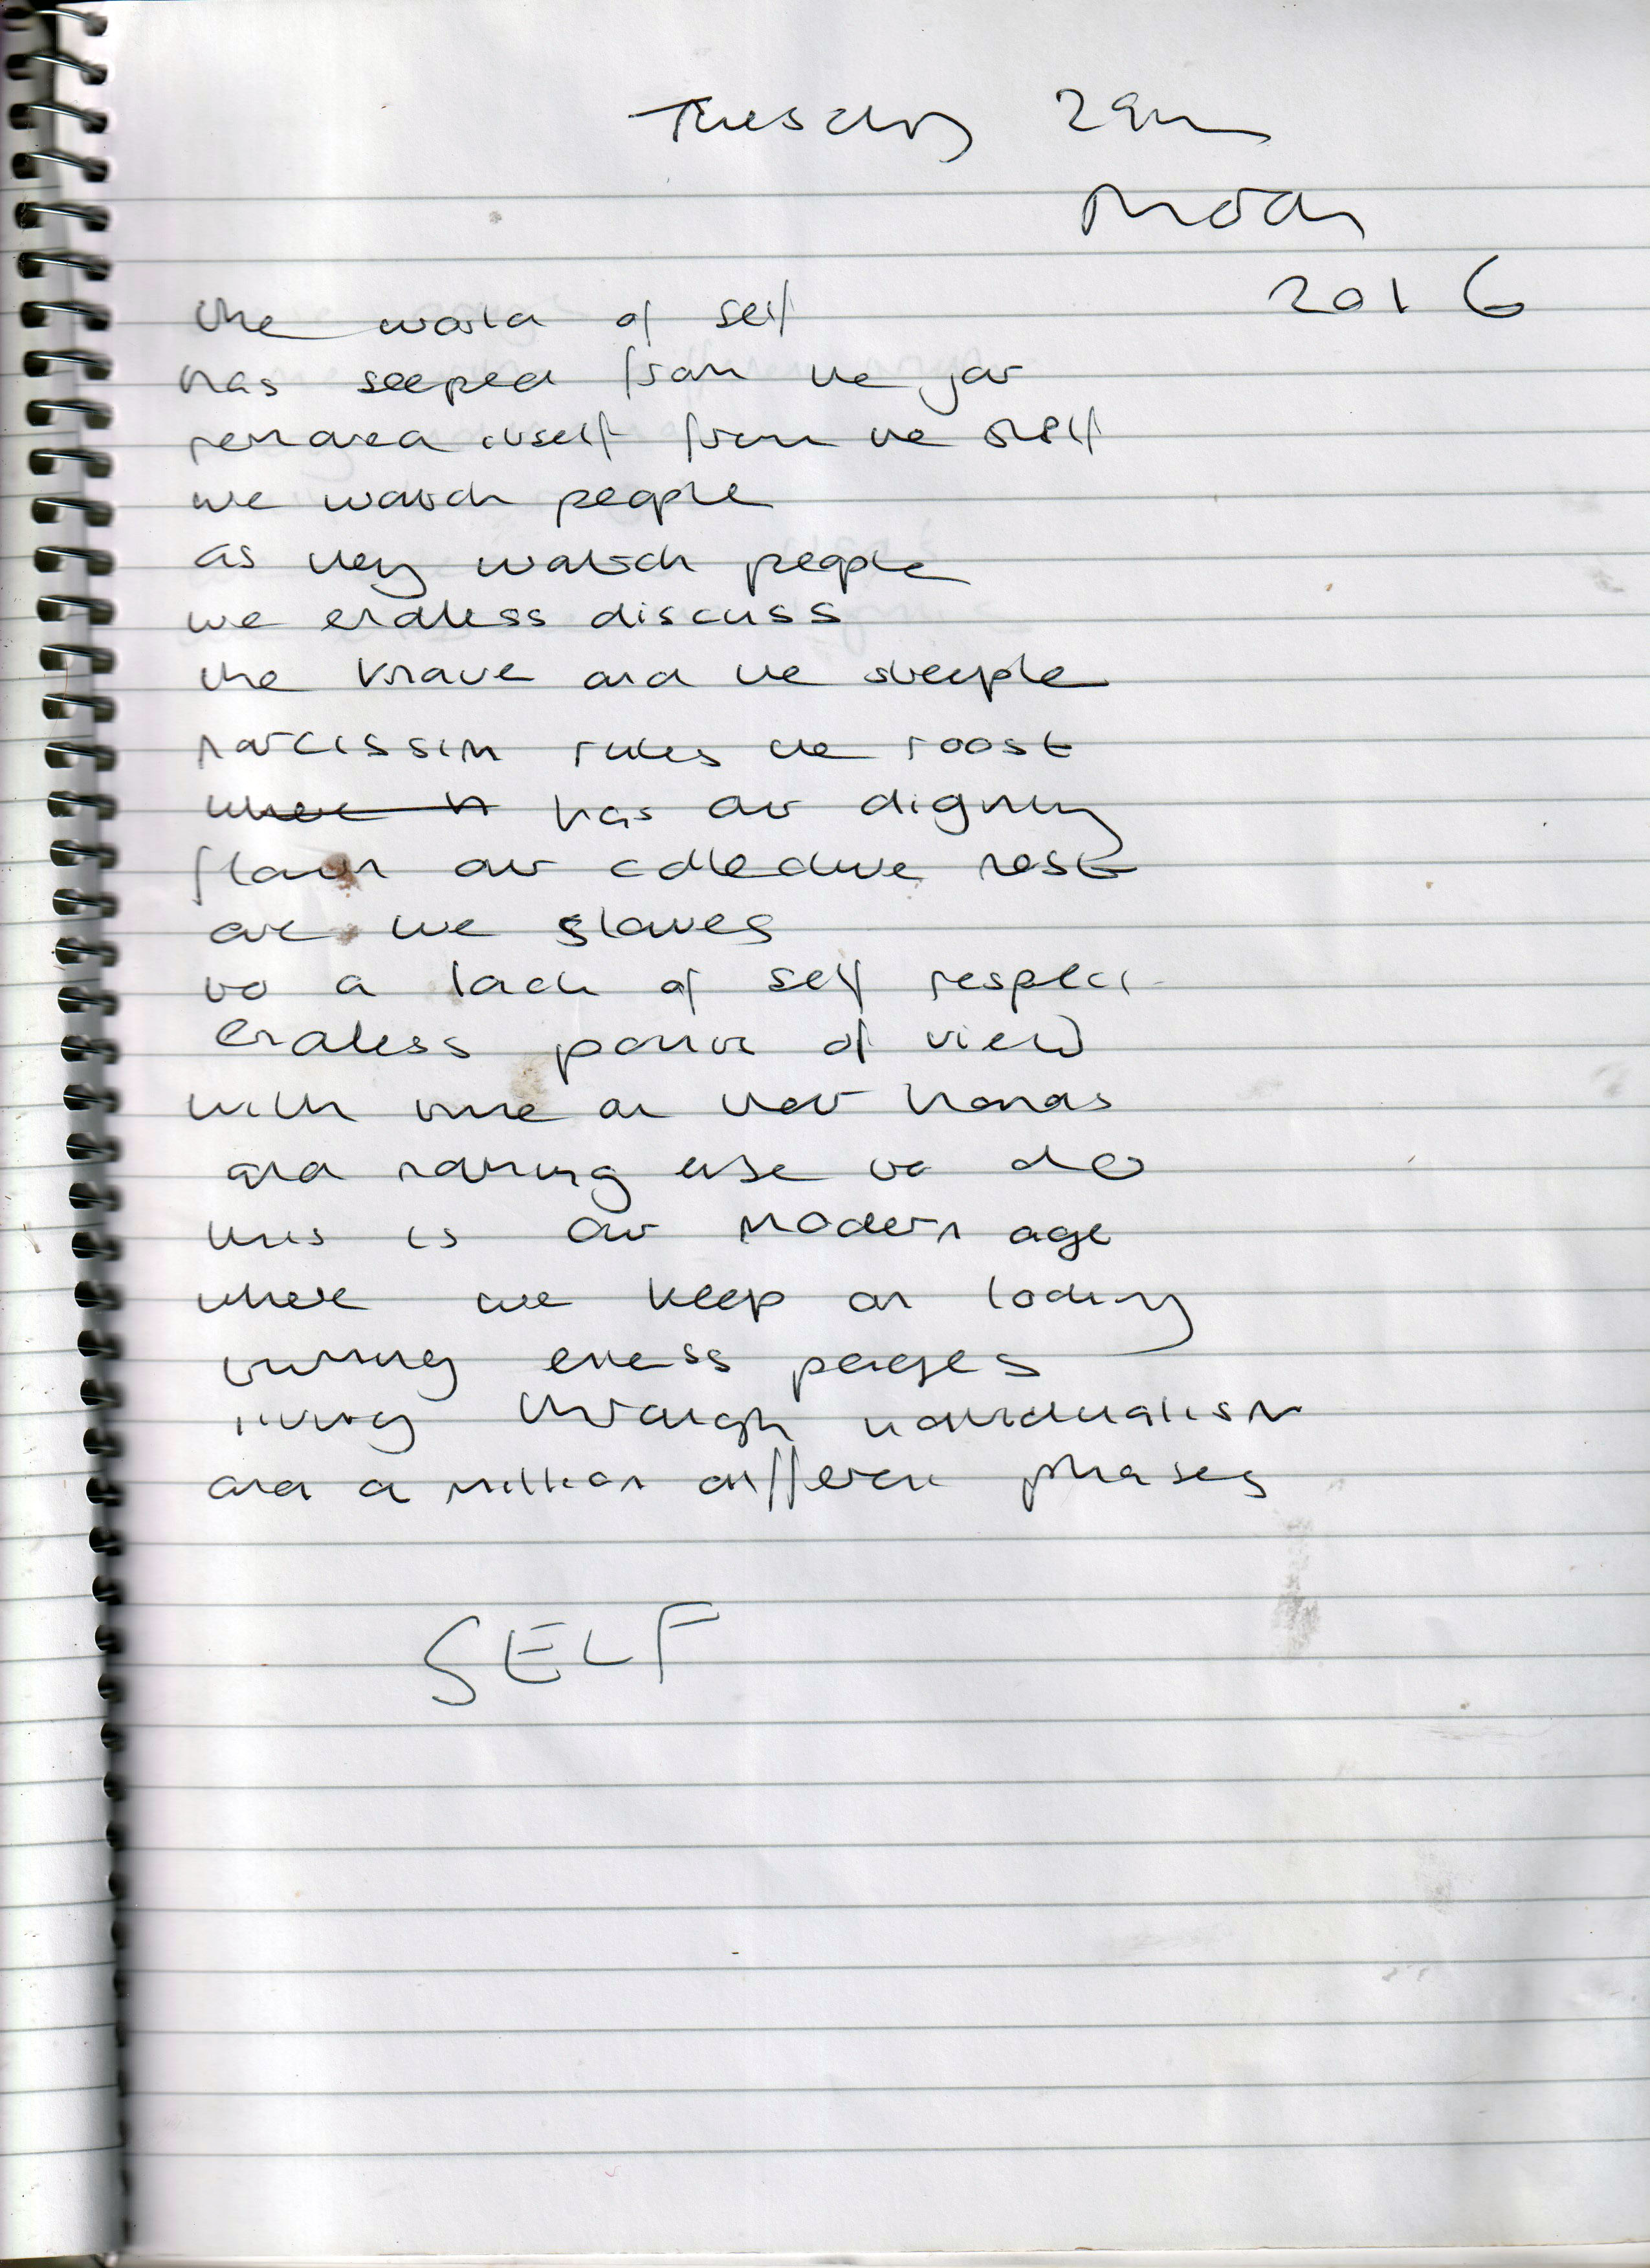 Tuesday 29th
March
2016
the world of self
has seeped from the jar
removed itself from the shelf
we watch people
as they watch people
we endless discuss
the knave and the sheeple
narcissim rules the roost
has our dignity
flown our collective nest
are we slaves
to a lack of self respect
endless points of view
with time on their hands
and nothing else to do
this is our modern age
where we keep on looking
turning endless pages
living through individualism
and a million different phases
SELF